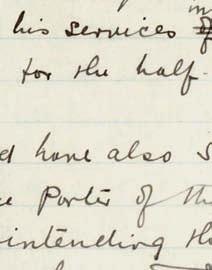 his services
for the half
d have also s
e Porter of th
intending th